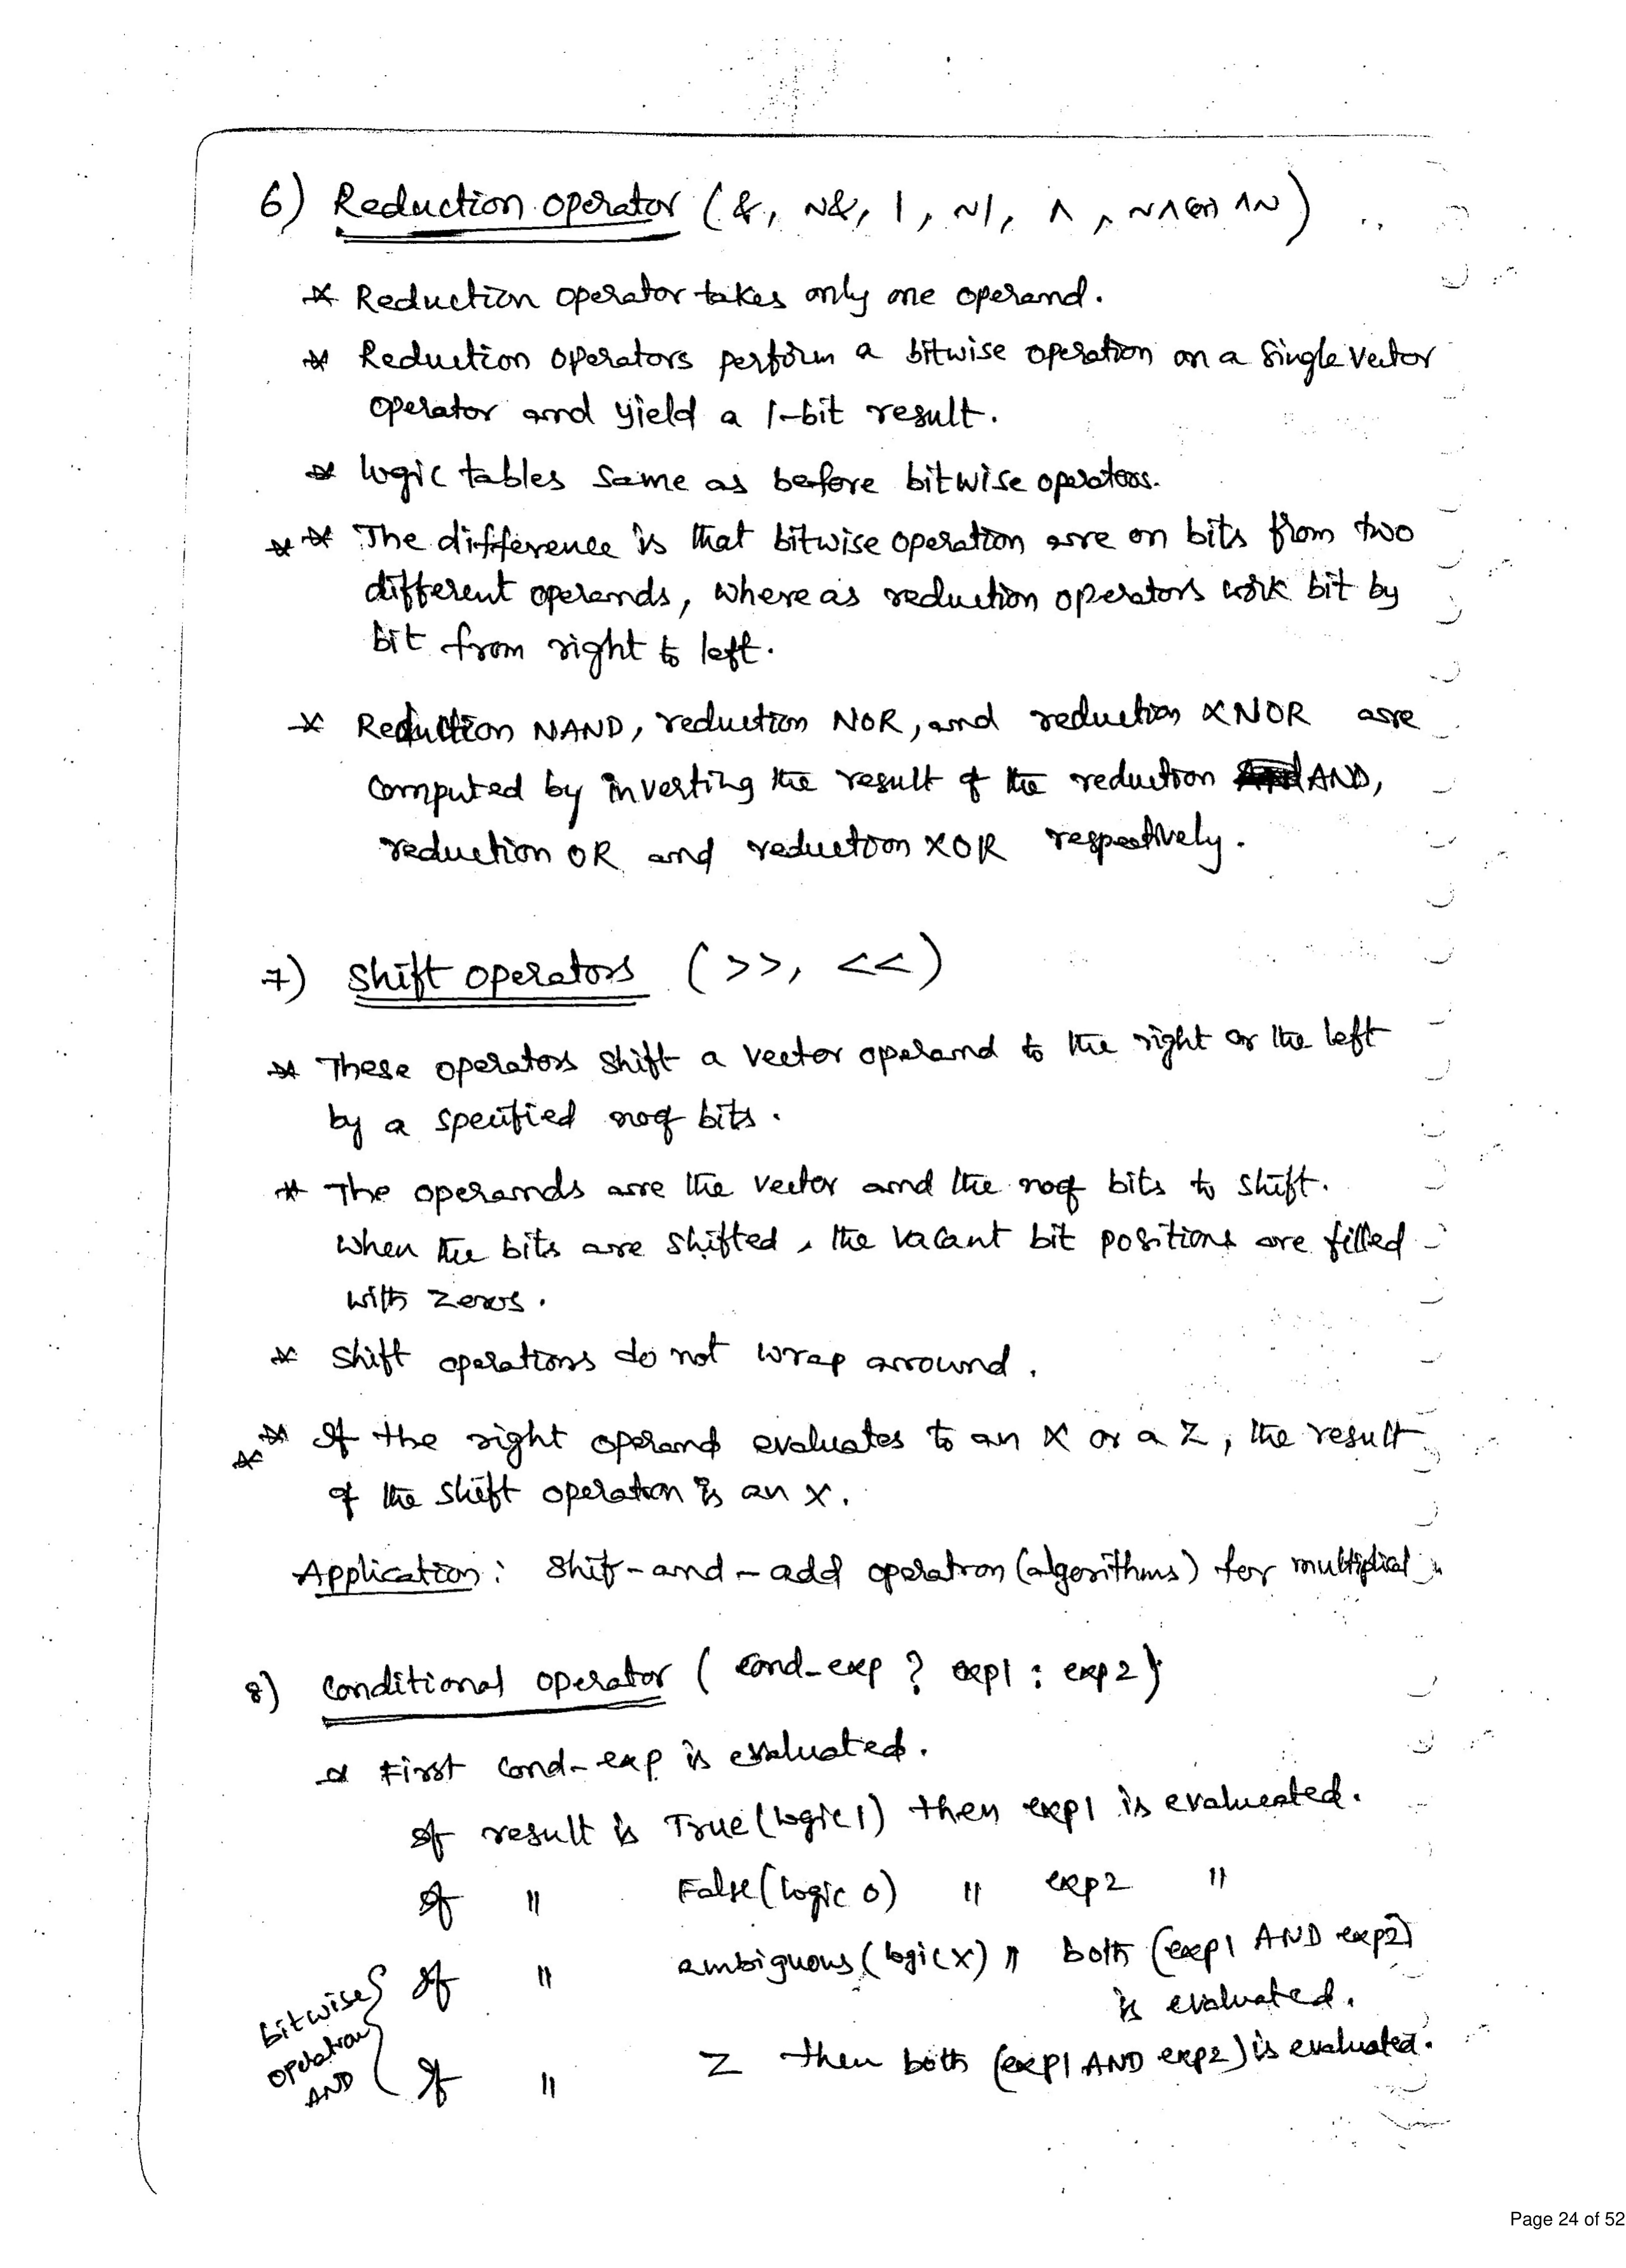 6) Reduction operator (&, ~&, |, ~|, ^, ~^ (or) ^~)
* Reduction operator takes only one operand.
* Reduction operators perform a bitwise operation on a single vector
operator and yield a 1-bit result.
* logic tables same as before bitwise operators.
** The difference is that bitwise operation are on bits from two
different operands, where as reduction operators work bit by
bit from right to left.
* Reduction NAND, reduction NOR, and reduction XNOR are
computed by inverting the result of the reduction AND,
reduction OR and reduction XOR respectively.
7) Shift operators (>>, <<)
* These operators shift a vector operand to the right or the left
by a specified no of bits.
* The operands are the vector and the no of bits to shift.
when the bits are shifted, the vacant bit positions are filled
with zeros.
* Shift operations do not wrap arround.
** If the right operand evaluates to an X or a Z, the result
of the shift operation is an x.
Application: Shif-and-add operation (algorithms) for multiplicat
8) Conditional operator (cond_exp ? exp1 : exp2)
* First cond-exp is evaluated.
If result is True (logic 1) then exp1 is evaluated.
If " False (logic 0) " exp2 "
If " ambiguous (logic x) " both (exp1 AND exp2)
is evaluated.
If " Z then both (exp1 AND exp2) is evaluated.
bitwise
operation
AND
Page 24 of 52